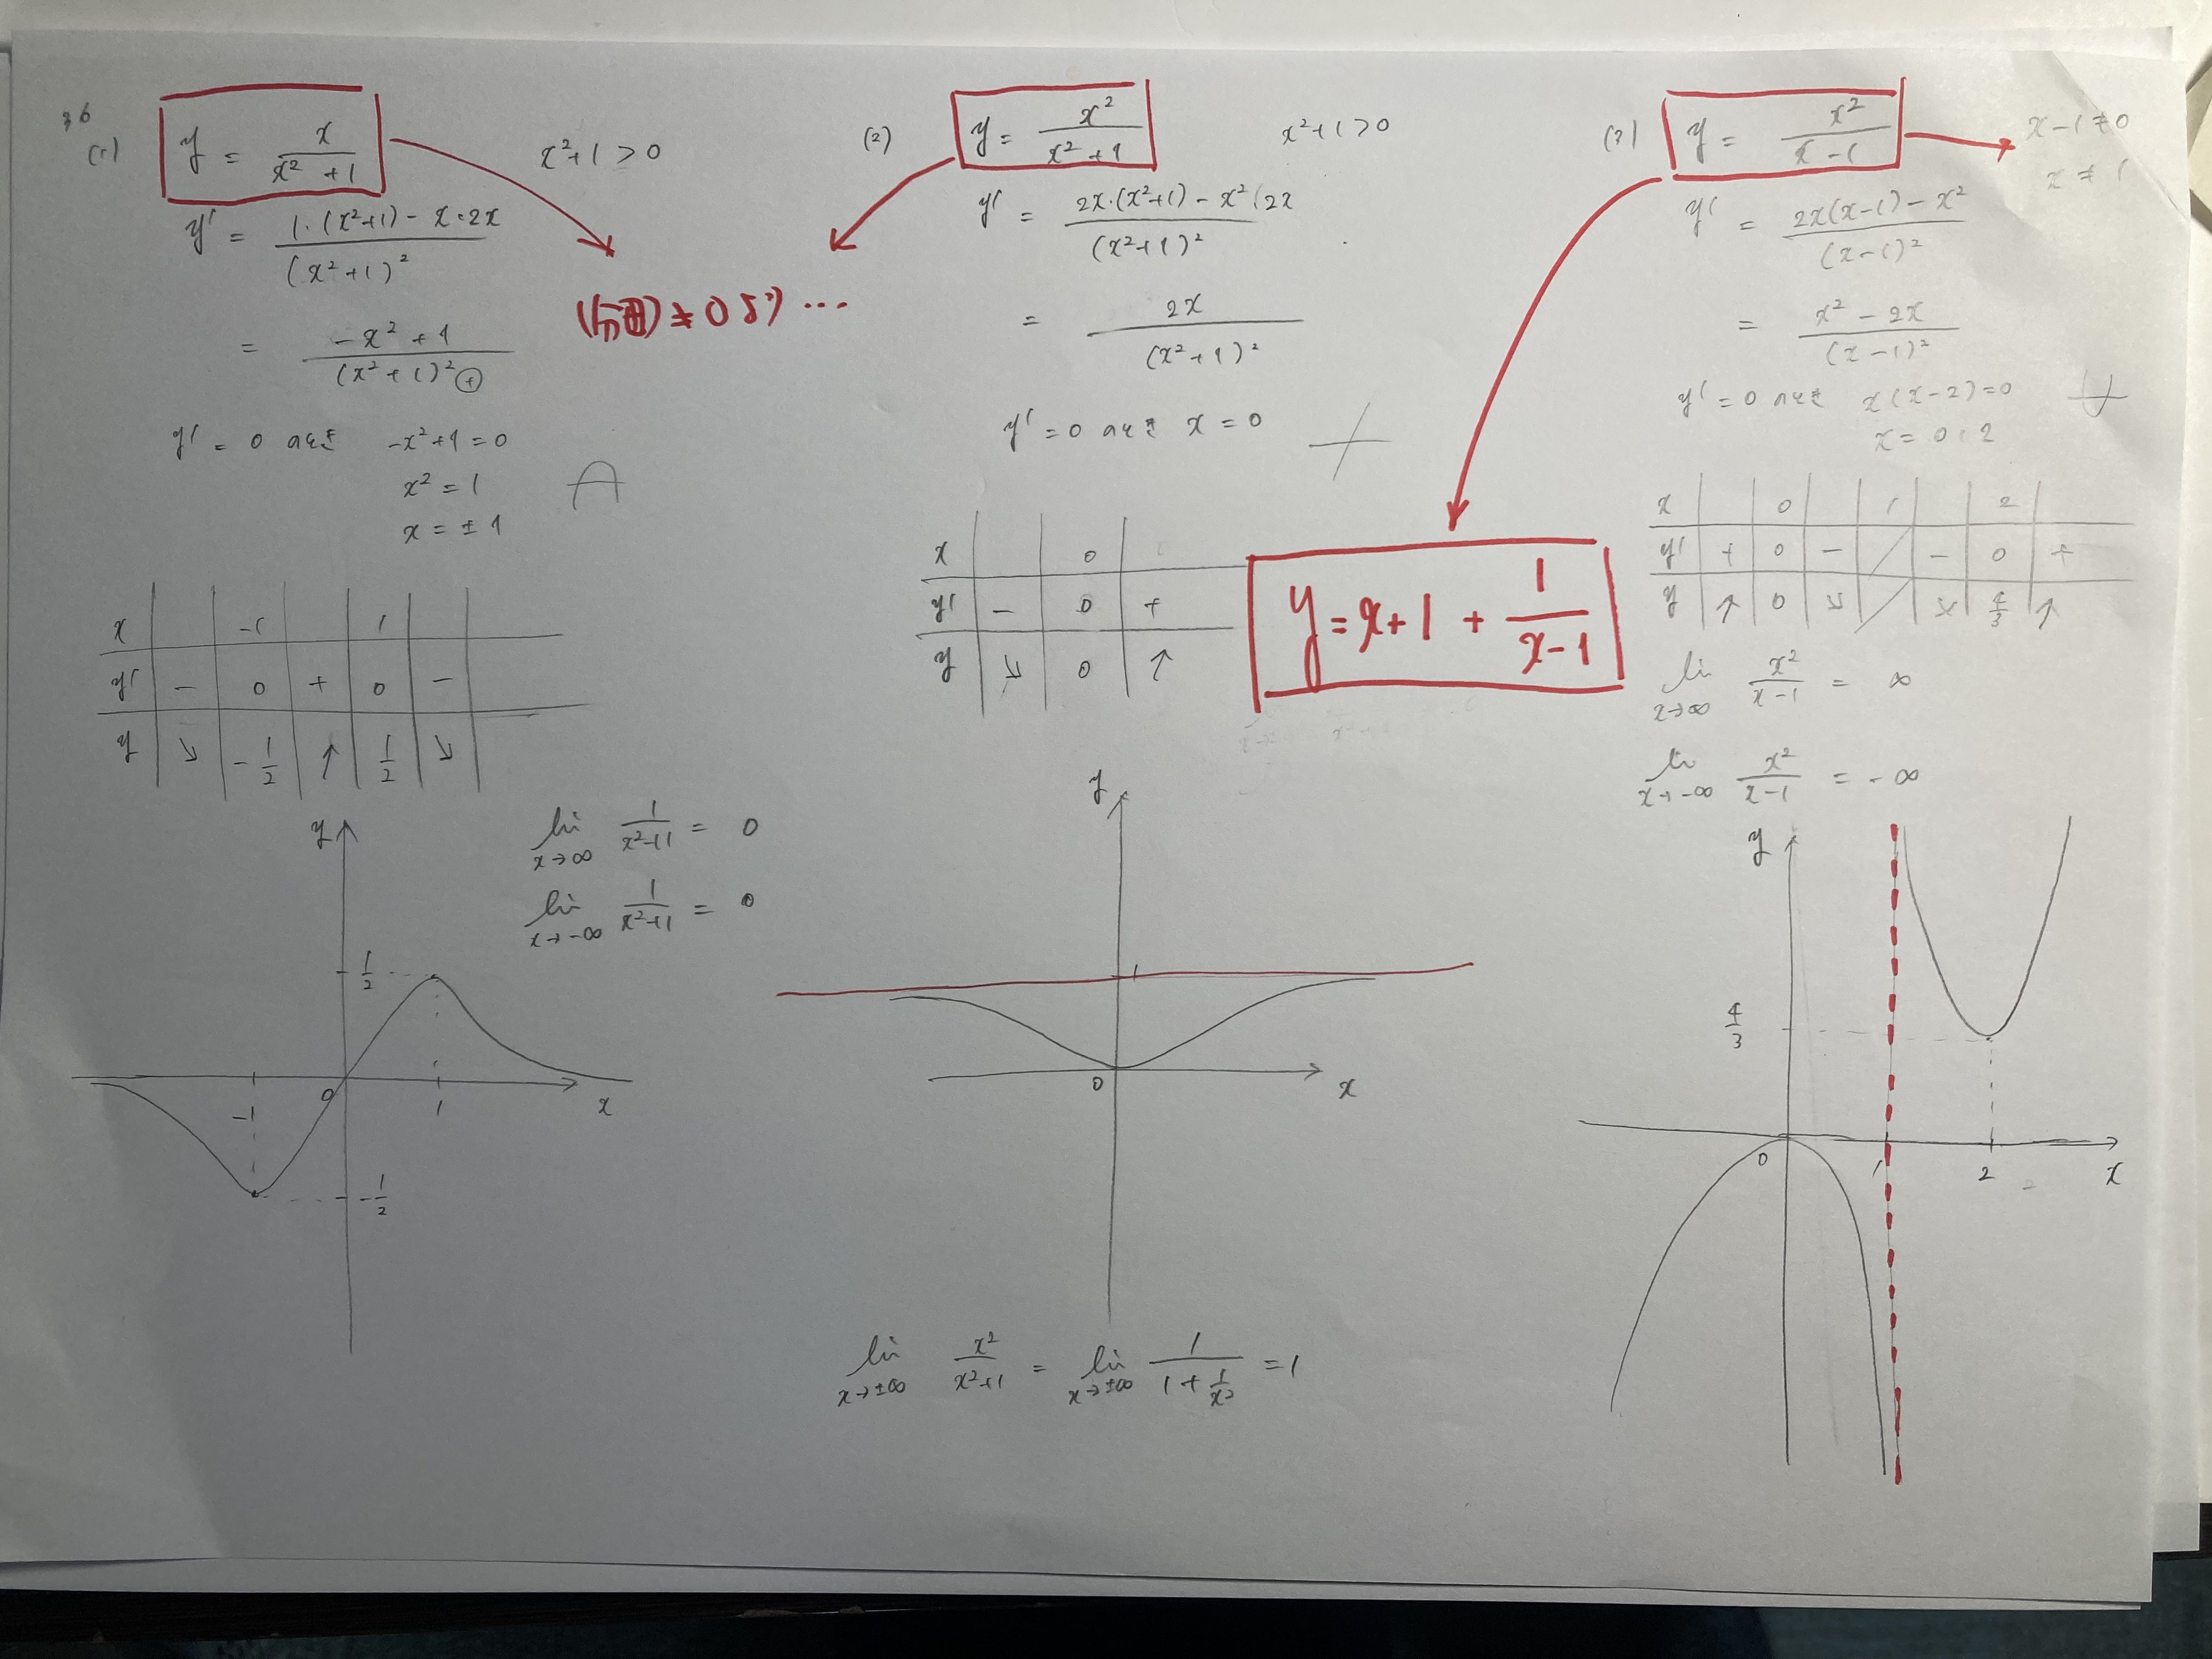 36
(1) y = x/(x²+1)
x²+1 > 0
y' = (1·(x²+1) - x·2x)/(x²+1)²
= (-x²+1)/(x²+1)² ⊕
y' = 0 のとき -x²+1 = 0
x² = 1
x = ±1
x -1 1
y' - 0 + 0 -
y ↘ -1/2 ↗ 1/2 ↘
lim x→∞ 1/(x²+1) = 0
lim x→-∞ 1/(x²+1) = 0
y
1/2
-1 0 1 x
-1/2
(分母)≠0より…
(2) y = x²/(x²+1)
x²+1 > 0
y' = (2x·(x²+1) - x²(2x/(x²+1)²
= 2x/(x²+1)²
y' = 0 のとき x = 0
x 0
y' - 0 +
y ↘ 0 ↗
y
1
0 x
lim x→±∞ x²/(x²+1) = lim x→±∞ 1/(1+1/x²) = 1
(3) y = x²/(x-1)
x-1 ≠ 0
x ≠ 1
y' = (2x(x-1) - x²)/(x-1)²
= (x² - 2x)/(x-1)²
y' = 0 のとき x(x-2) = 0
x = 0, 2
y = x+1 + 1/(x-1)
x 0 1 2
y' + 0 - - 0 +
y ↗ 0 ↘ ↘ 4/3 ↗
lim x→∞ x²/(x-1) = ∞
lim x→-∞ x²/(x-1) = -∞
y
4/3
0 1 2 x